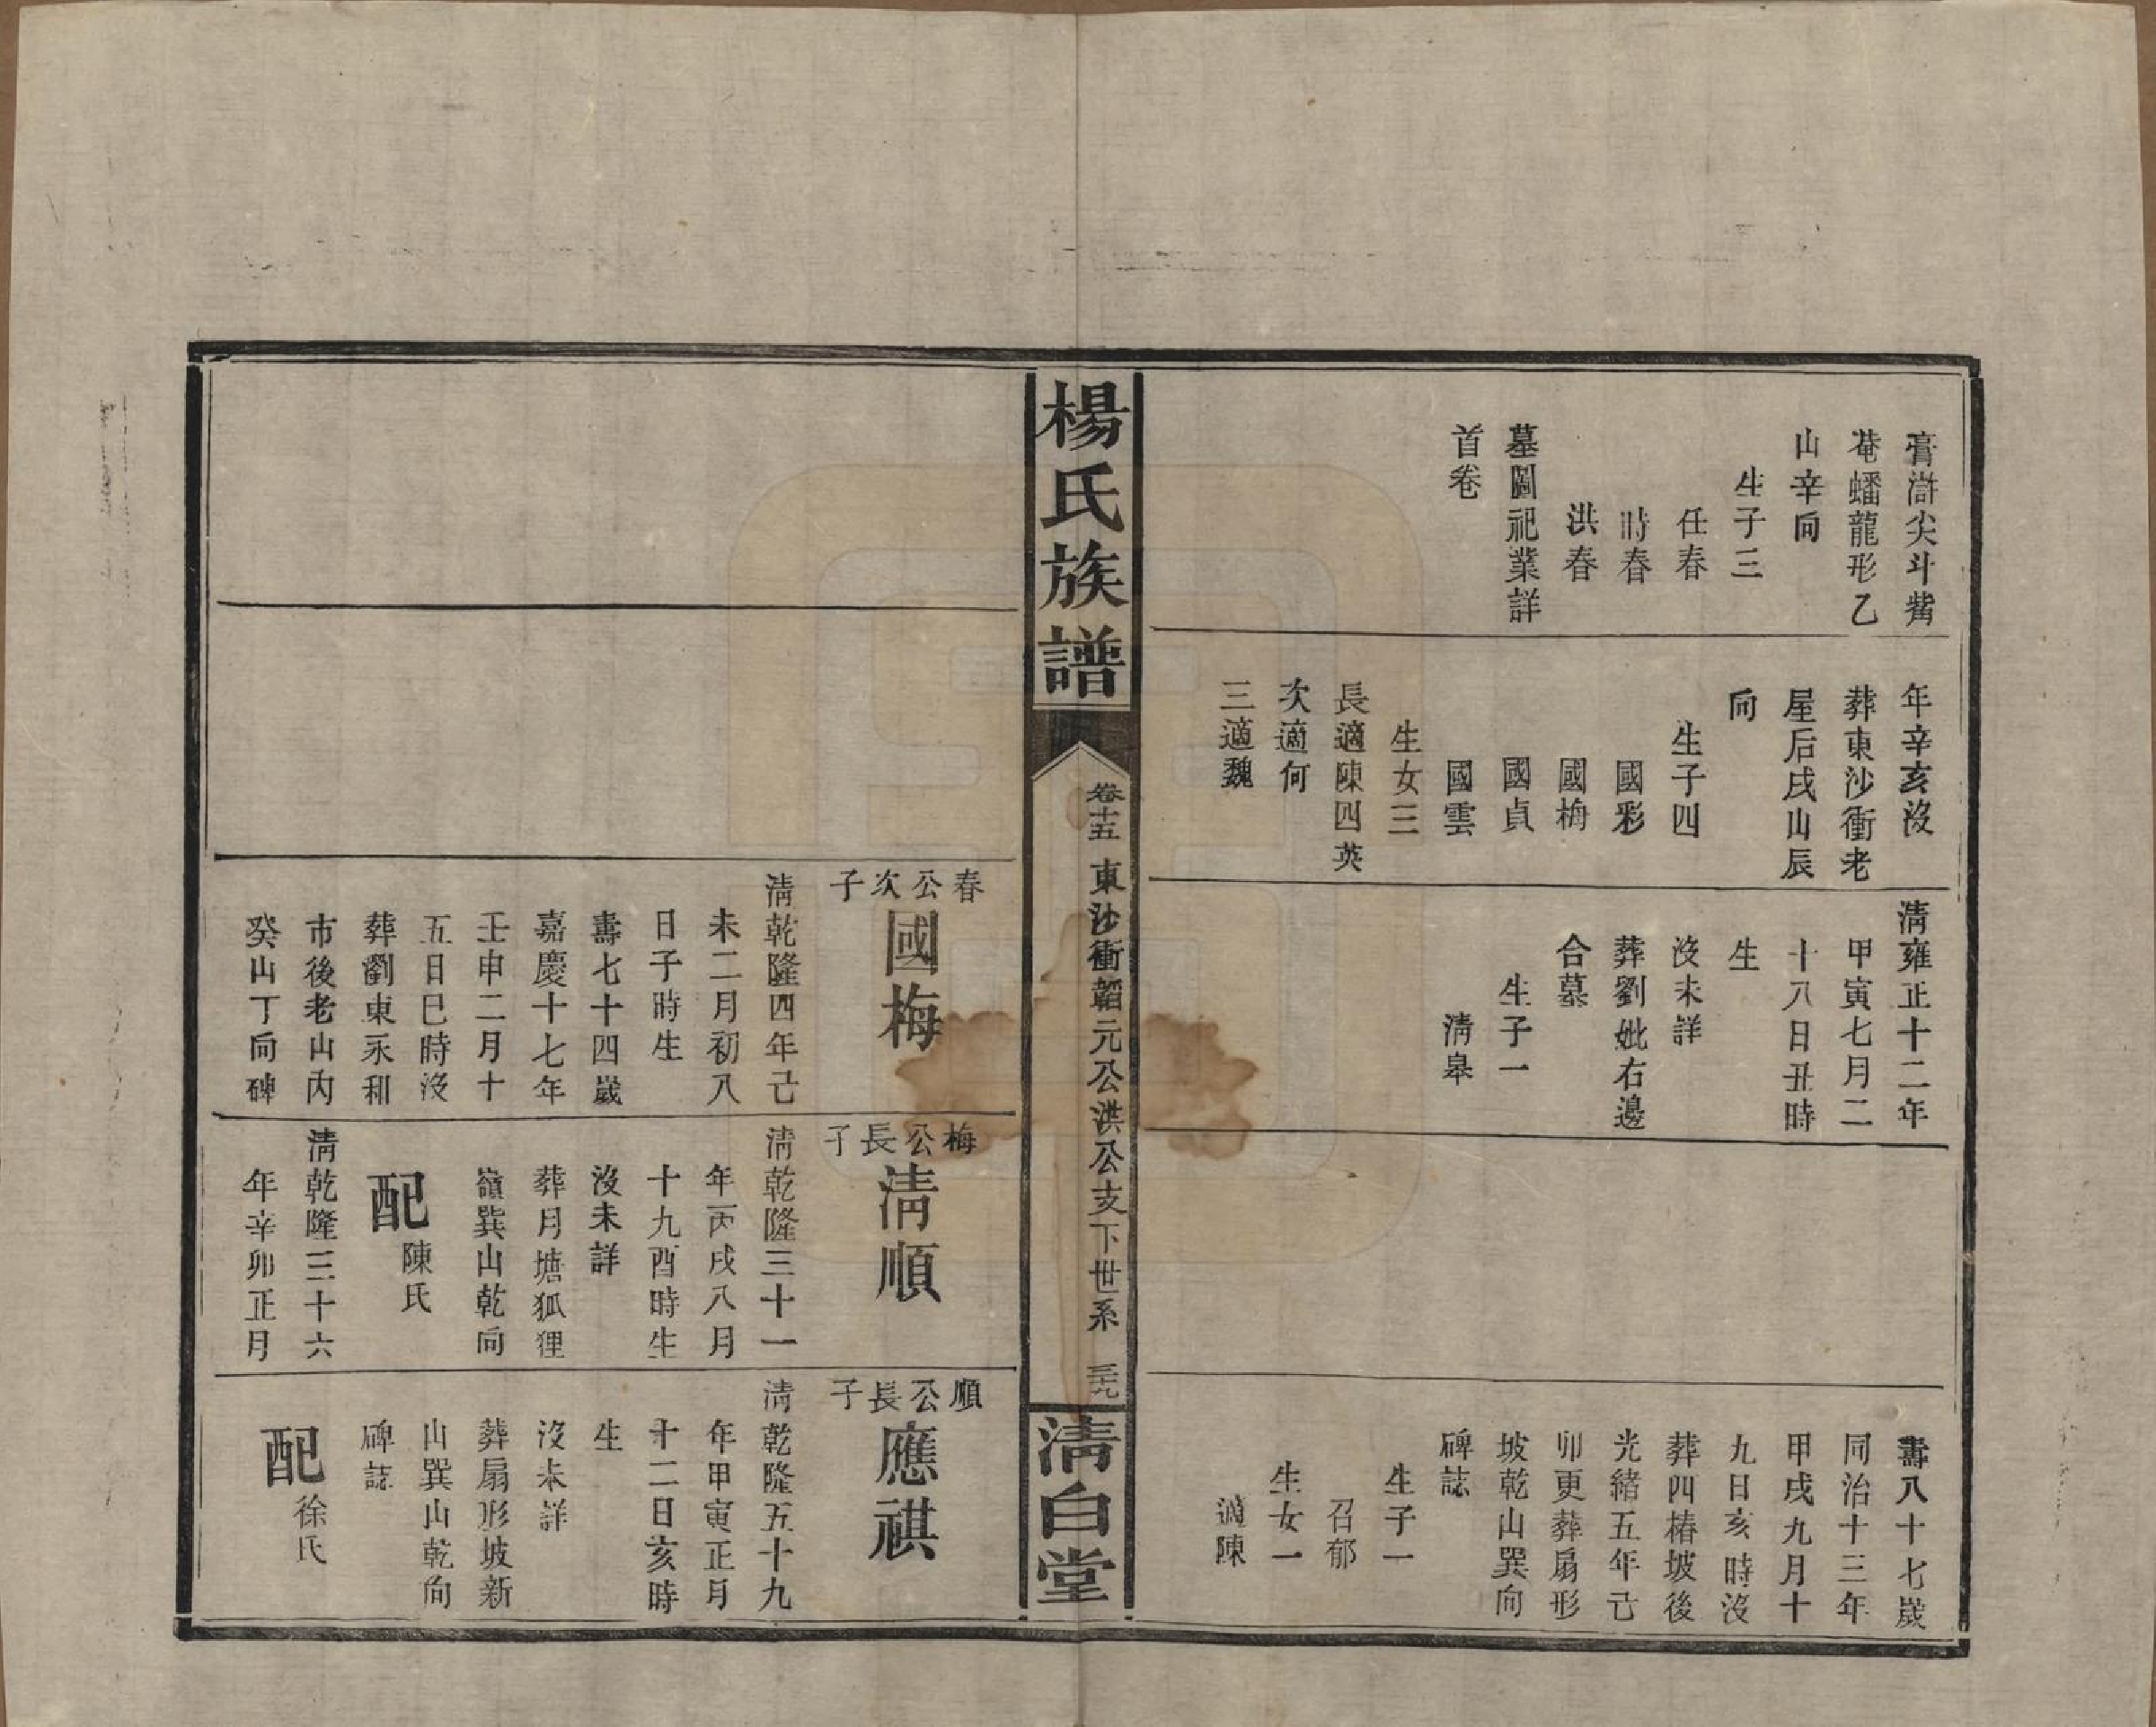 膏滸尖斗觜
菴蟠龍形乙
山辛向
生子三
任春
時春
洪春
墓圖祀業詳
首卷
年辛亥沒
葬東沙衝老
屋后戌山辰
向
生子四
國彩
國梅
國貞
國雲
生女三
長適陳四英
次適何
三適魏
清雍正十二年
甲寅七月二
十八日丑時
生
沒未詳
葬劉妣右邊
合墓
生子一
清皋
壽八十七歲
同治十三年
甲戌九月十
九日亥時沒
葬四椿坡後
光緒五年己
卯更葬扇形
坡乾山巽向
碑誌
生子一
召郁
生女一
適陳
楊氏族譜
卷十五 東沙衝韜元公洪公支下世系 三十九
清白堂
春公次子
國梅
清乾隆四年己
未二月初八
日子時生
壽七十四歲
嘉慶十七年
壬申二月十
五日巳時沒
葬瀏東永和
市後老山內
癸山丁向碑
梅公長子
清順
清乾隆三十一
年丙戌八月
十九酉時生
沒未詳
葬月塘狐狸
嶺巽山乾向
配陳氏
清乾隆三十六
年辛卯正月
順公長子
應祺
清乾隆五十九
年甲寅正月
十二日亥時
生
沒未詳
葬扇形坡新
山巽山乾向
碑誌
配徐氏